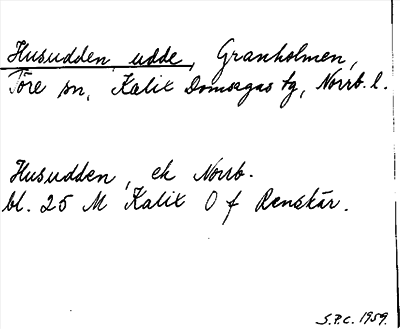 Husudden, udde, Granholmen,
Töre sn, Kalix Domsagas tg, Norrb. l.
Husudden, ek Norrb.
bl. 25 M Kalix O f Renskär.
S.P.C. 1959.